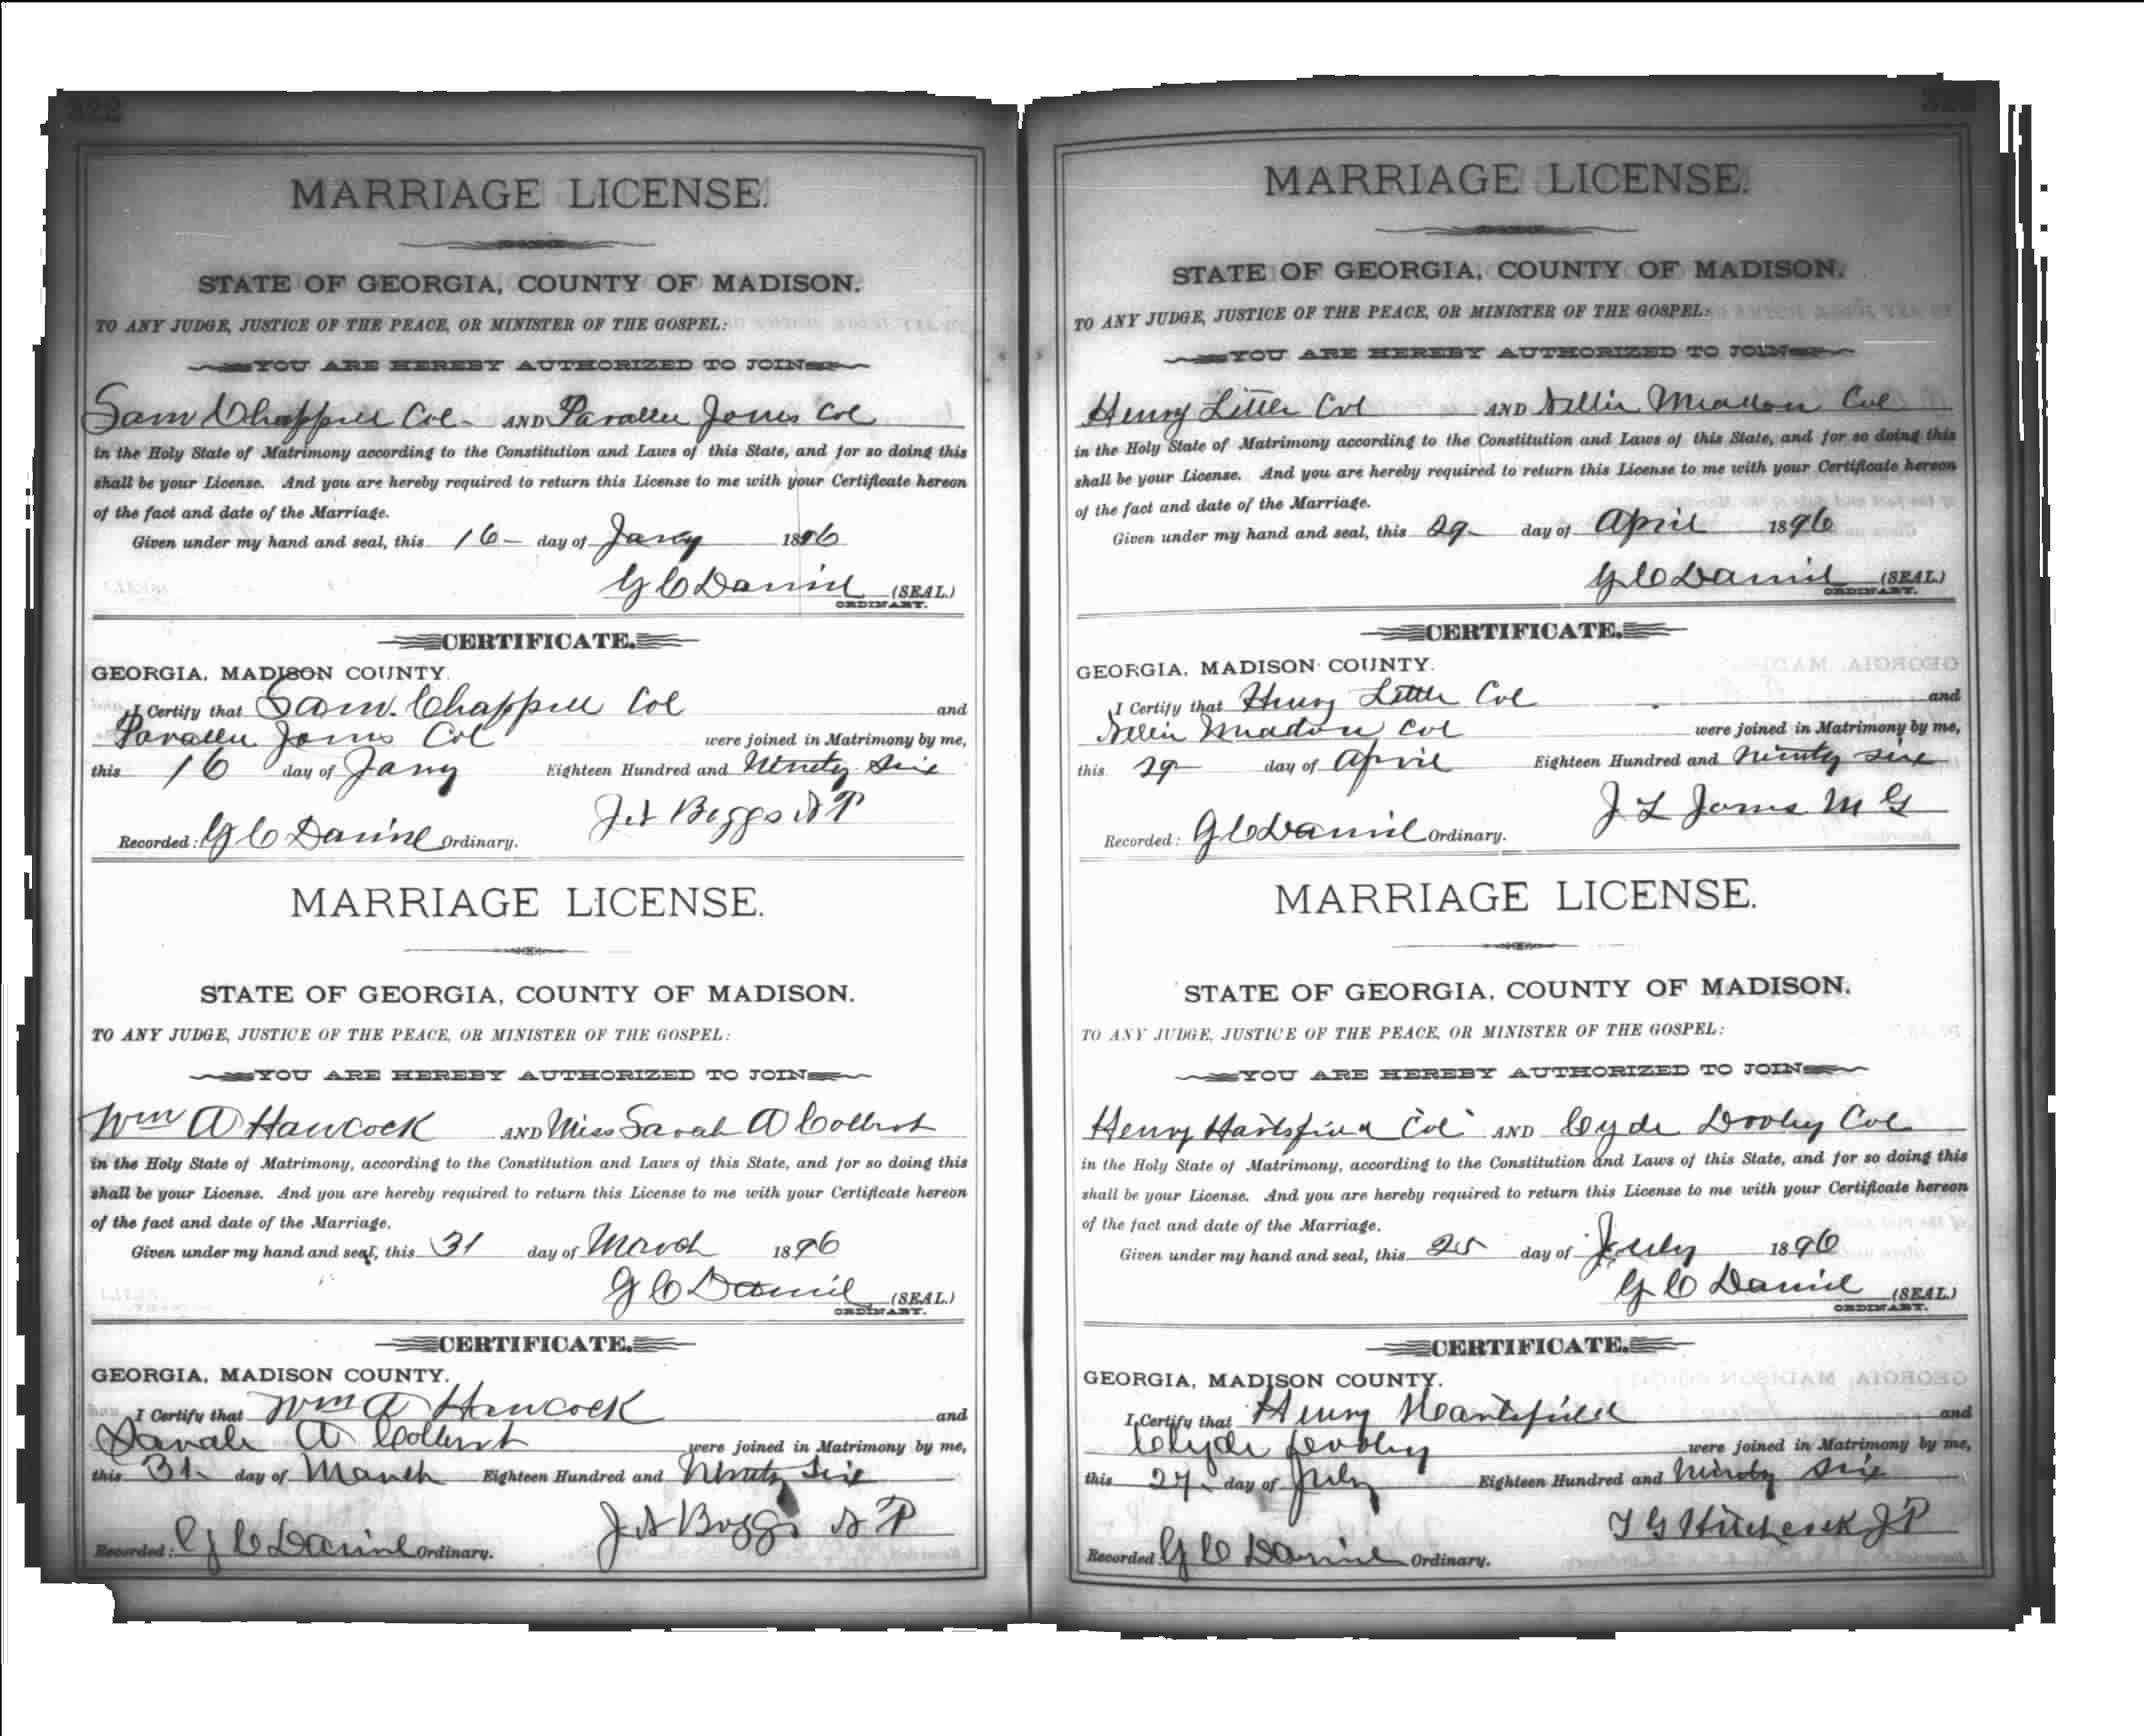 322
MARRIAGE LICENSE.
STATE OF GEORGIA, COUNTY OF MADISON.
TO ANY JUDGE, JUSTICE OF THE PEACE, OR MINISTER OF THE GOSPEL:
YOU ARE HEREBY AUTHORIZED TO JOIN
Sam Chappell Col AND Jones Col
in the Holy State of Matrimony according to the Constitution and Laws of this State, and for so doing this
shall be your License. And you are hereby required to return this License to me with your Certificate hereon
of the fact and date of the Marriage.
Given under my hand and seal, this 16 day of Jany 1896
G C Daniel (SEAL.)
ORDINARY.
CERTIFICATE.
GEORGIA, MADISON COUNTY.
I Certify that Sam. Chappell Col and
Jones Col were joined in Matrimony by me,
this 16 day of Jany Eighteen Hundred and Ninety six
Boggs N P
Recorded: G C Daniel Ordinary.
MARRIAGE LICENSE.
STATE OF GEORGIA, COUNTY OF MADISON.
TO ANY JUDGE, JUSTICE OF THE PEACE, OR MINISTER OF THE GOSPEL:
YOU ARE HEREBY AUTHORIZED TO JOIN
Wm A Hancock AND Miss Sarah A Colbert
in the Holy State of Matrimony, according to the Constitution and Laws of this State, and for so doing this
shall be your License. And you are hereby required to return this License to me with your Certificate hereon
of the fact and date of the Marriage.
Given under my hand and seal, this 31 day of March 1896
G C Daniel (SEAL.)
ORDINARY.
CERTIFICATE.
GEORGIA, MADISON COUNTY.
I Certify that Wm A Hancock and
Sarah A Colbert were joined in Matrimony by me,
this 31 day of March Eighteen Hundred and Ninety Six
Boggs N P
Recorded: G C Daniel Ordinary.
MARRIAGE LICENSE.
STATE OF GEORGIA, COUNTY OF MADISON.
TO ANY JUDGE, JUSTICE OF THE PEACE, OR MINISTER OF THE GOSPEL:
YOU ARE HEREBY AUTHORIZED TO JOIN
Henry Little Col AND Nellie Meadow Col
in the Holy State of Matrimony according to the Constitution and Laws of this State, and for so doing this
shall be your License. And you are hereby required to return this License to me with your Certificate hereon
of the fact and date of the Marriage.
Given under my hand and seal, this 29 day of April 1896
G C Daniel (SEAL.)
ORDINARY.
CERTIFICATE.
GEORGIA, MADISON COUNTY.
I Certify that Henry Little Col and
Nellie Meadow Col were joined in Matrimony by me,
this 29 day of April Eighteen Hundred and Ninety six
J L Jones M G
Recorded: G C Daniel Ordinary.
MARRIAGE LICENSE.
STATE OF GEORGIA, COUNTY OF MADISON.
TO ANY JUDGE, JUSTICE OF THE PEACE, OR MINISTER OF THE GOSPEL:
YOU ARE HEREBY AUTHORIZED TO JOIN
Henry Hartsfield Col AND Clyde Dooley Col
in the Holy State of Matrimony, according to the Constitution and Laws of this State, and for so doing this
shall be your License. And you are hereby required to return this License to me with your Certificate hereon
of the fact and date of the Marriage.
Given under my hand and seal, this 25 day of July 1896
G C Daniel (SEAL.)
ORDINARY.
CERTIFICATE.
GEORGIA, MADISON COUNTY.
I Certify that Henry Hartsfield and
Clyde Dooley were joined in Matrimony by me,
this 27 day of July Eighteen Hundred and Ninety six
T G J P
Recorded: G C Daniel Ordinary.